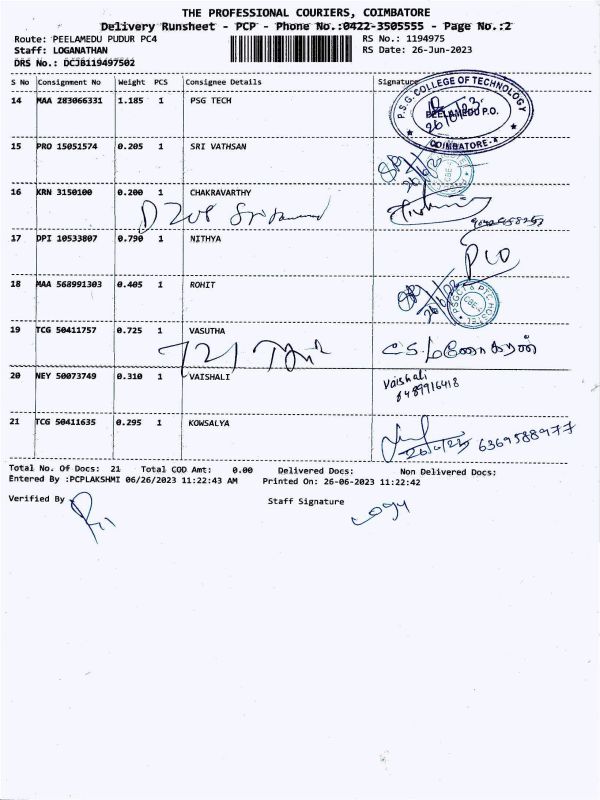 THE PROFESSIONAL COURIERS, COIMBATORE
Delivery Runsheet - PCP - Phone No.:0422-3505555 - Page No.:2
Route: PEELAMEDU PUDUR PC4 RS No.: 1194975
Staff: LOGANATHAN RS Date: 26-Jun-2023
DRS No.: DCJ8119497502
S No Consignment No Weight PCS Consignee Details Signature
14 MAA 283066331 1.185 1 PSG TECH
P.S.G. COLLEGE OF TECHNOLOGY
PEELAMEDU P.O.
COIMBATORE
15 PRO 15051574 0.205 1 SRI VATHSAN
16 KRN 3150100 0.200 1 CHAKRAVARTHY
17 DPI 10533807 0.790 1 NITHYA
18 MAA 568991303 0.405 1 ROHIT
19 TCG 50411757 0.725 1 VASUTHA
721
C.S. மனோகரன்
20 NEY 50073749 0.310 1 VAISHALI
Vaishali
8489916418
21 TCG 50411635 0.295 1 KOWSALYA
26/6/23 6369588977
Total No. Of Docs: 21 Total COD Amt: 0.00 Delivered Docs: Non Delivered Docs:
Entered By :PCPLAKSHMI 06/26/2023 11:22:43 AM Printed On: 26-06-2023 11:22:42
Verified By Staff Signature